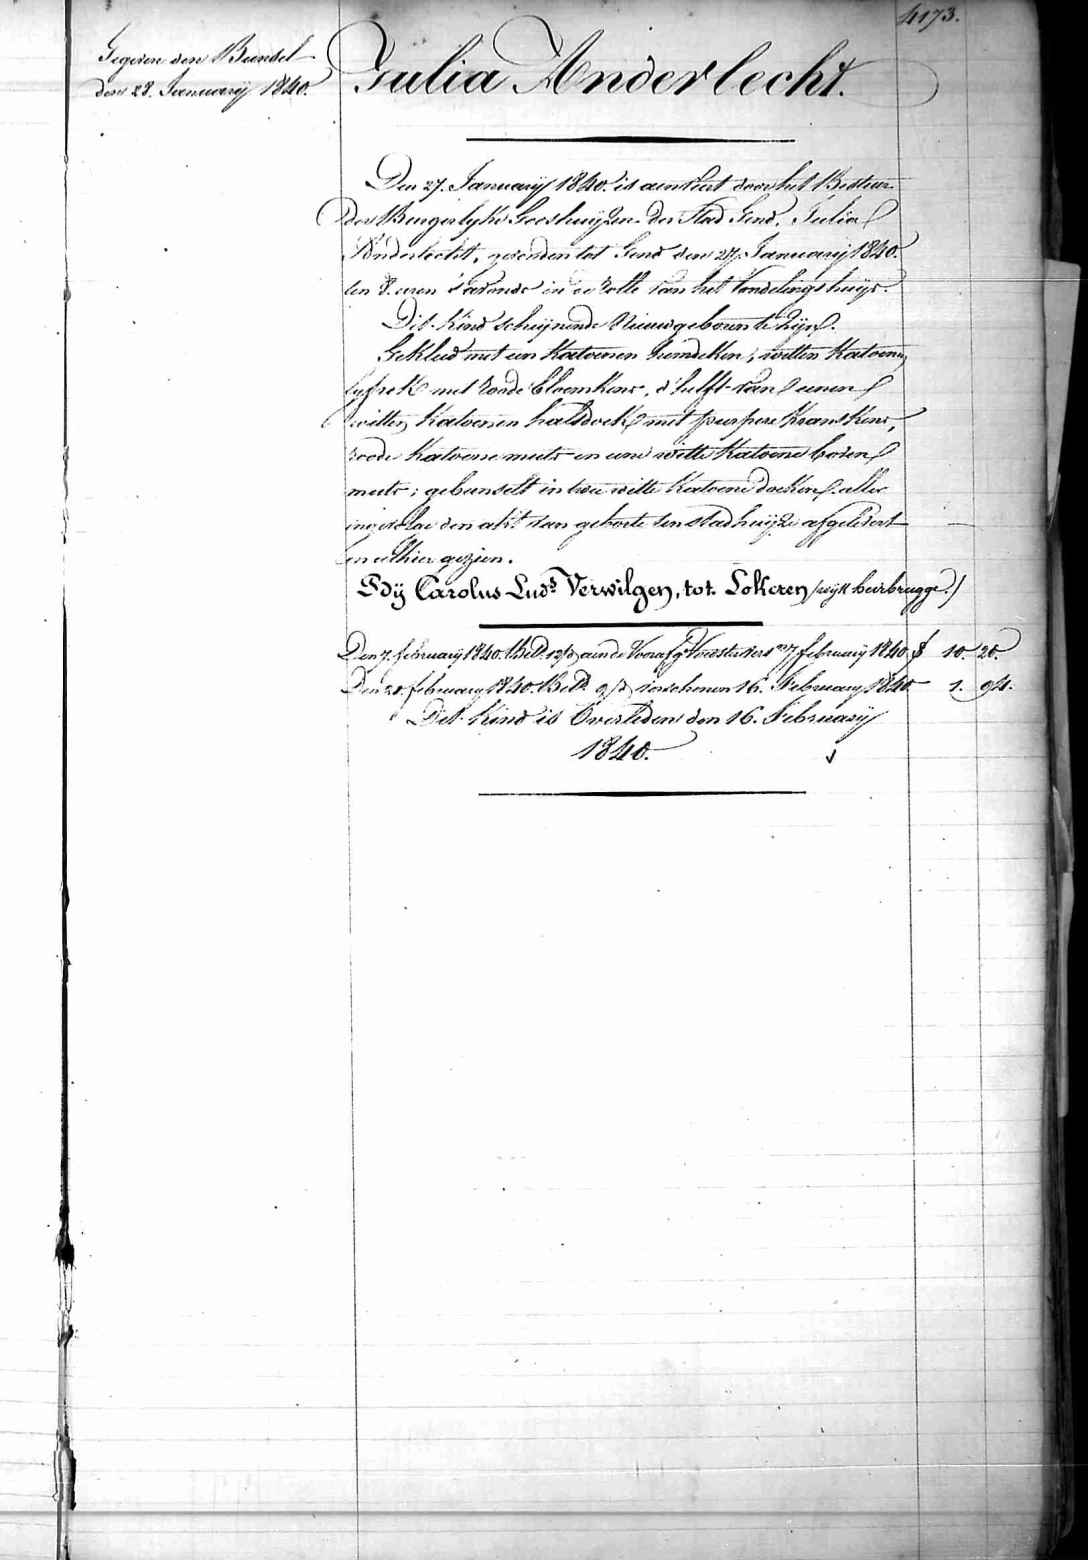 4173.
Gegeven den Bundel
den 28. January 1840.
Julia Anderlecht.
Den 27. January 1840. is aenveert door het Bestuer
der Burgerlyke Godshuyzen der Stad Gend, Julia
Anderlecht, gevonden tot Gend den 27. January 1840.
ten 8. uren 's avonds in de rolle van het Vondelingshuys.
Dit Kind schynende Nieuwgeboren te zyn.
Gekleed met een Katoenen hemdeken, witten Katoenen
lyfrok met roode bloemkens, d'helft van eenen
witten Katoenen halsdoek met purpere Kranskens,
roode Katoene muts en eene witte Katoene boven
muts; gebunselt in twee witte Katoene doeken, alles
ingevolge den akt van geboorte ten stadhuyze afgelevert
en alhier gezien.
Bij Carolus Luds Verwilgen, tot Lokeren (wyk heirbrugge.)
Den 7. february 1840. Bett. aen de Voorafg 7 february 1840 10. 20.
Den 21. february 1840. Bett. verschenen 16. February 1840 1. 94.
Dit Kind is Overleden den 16. February
1840.